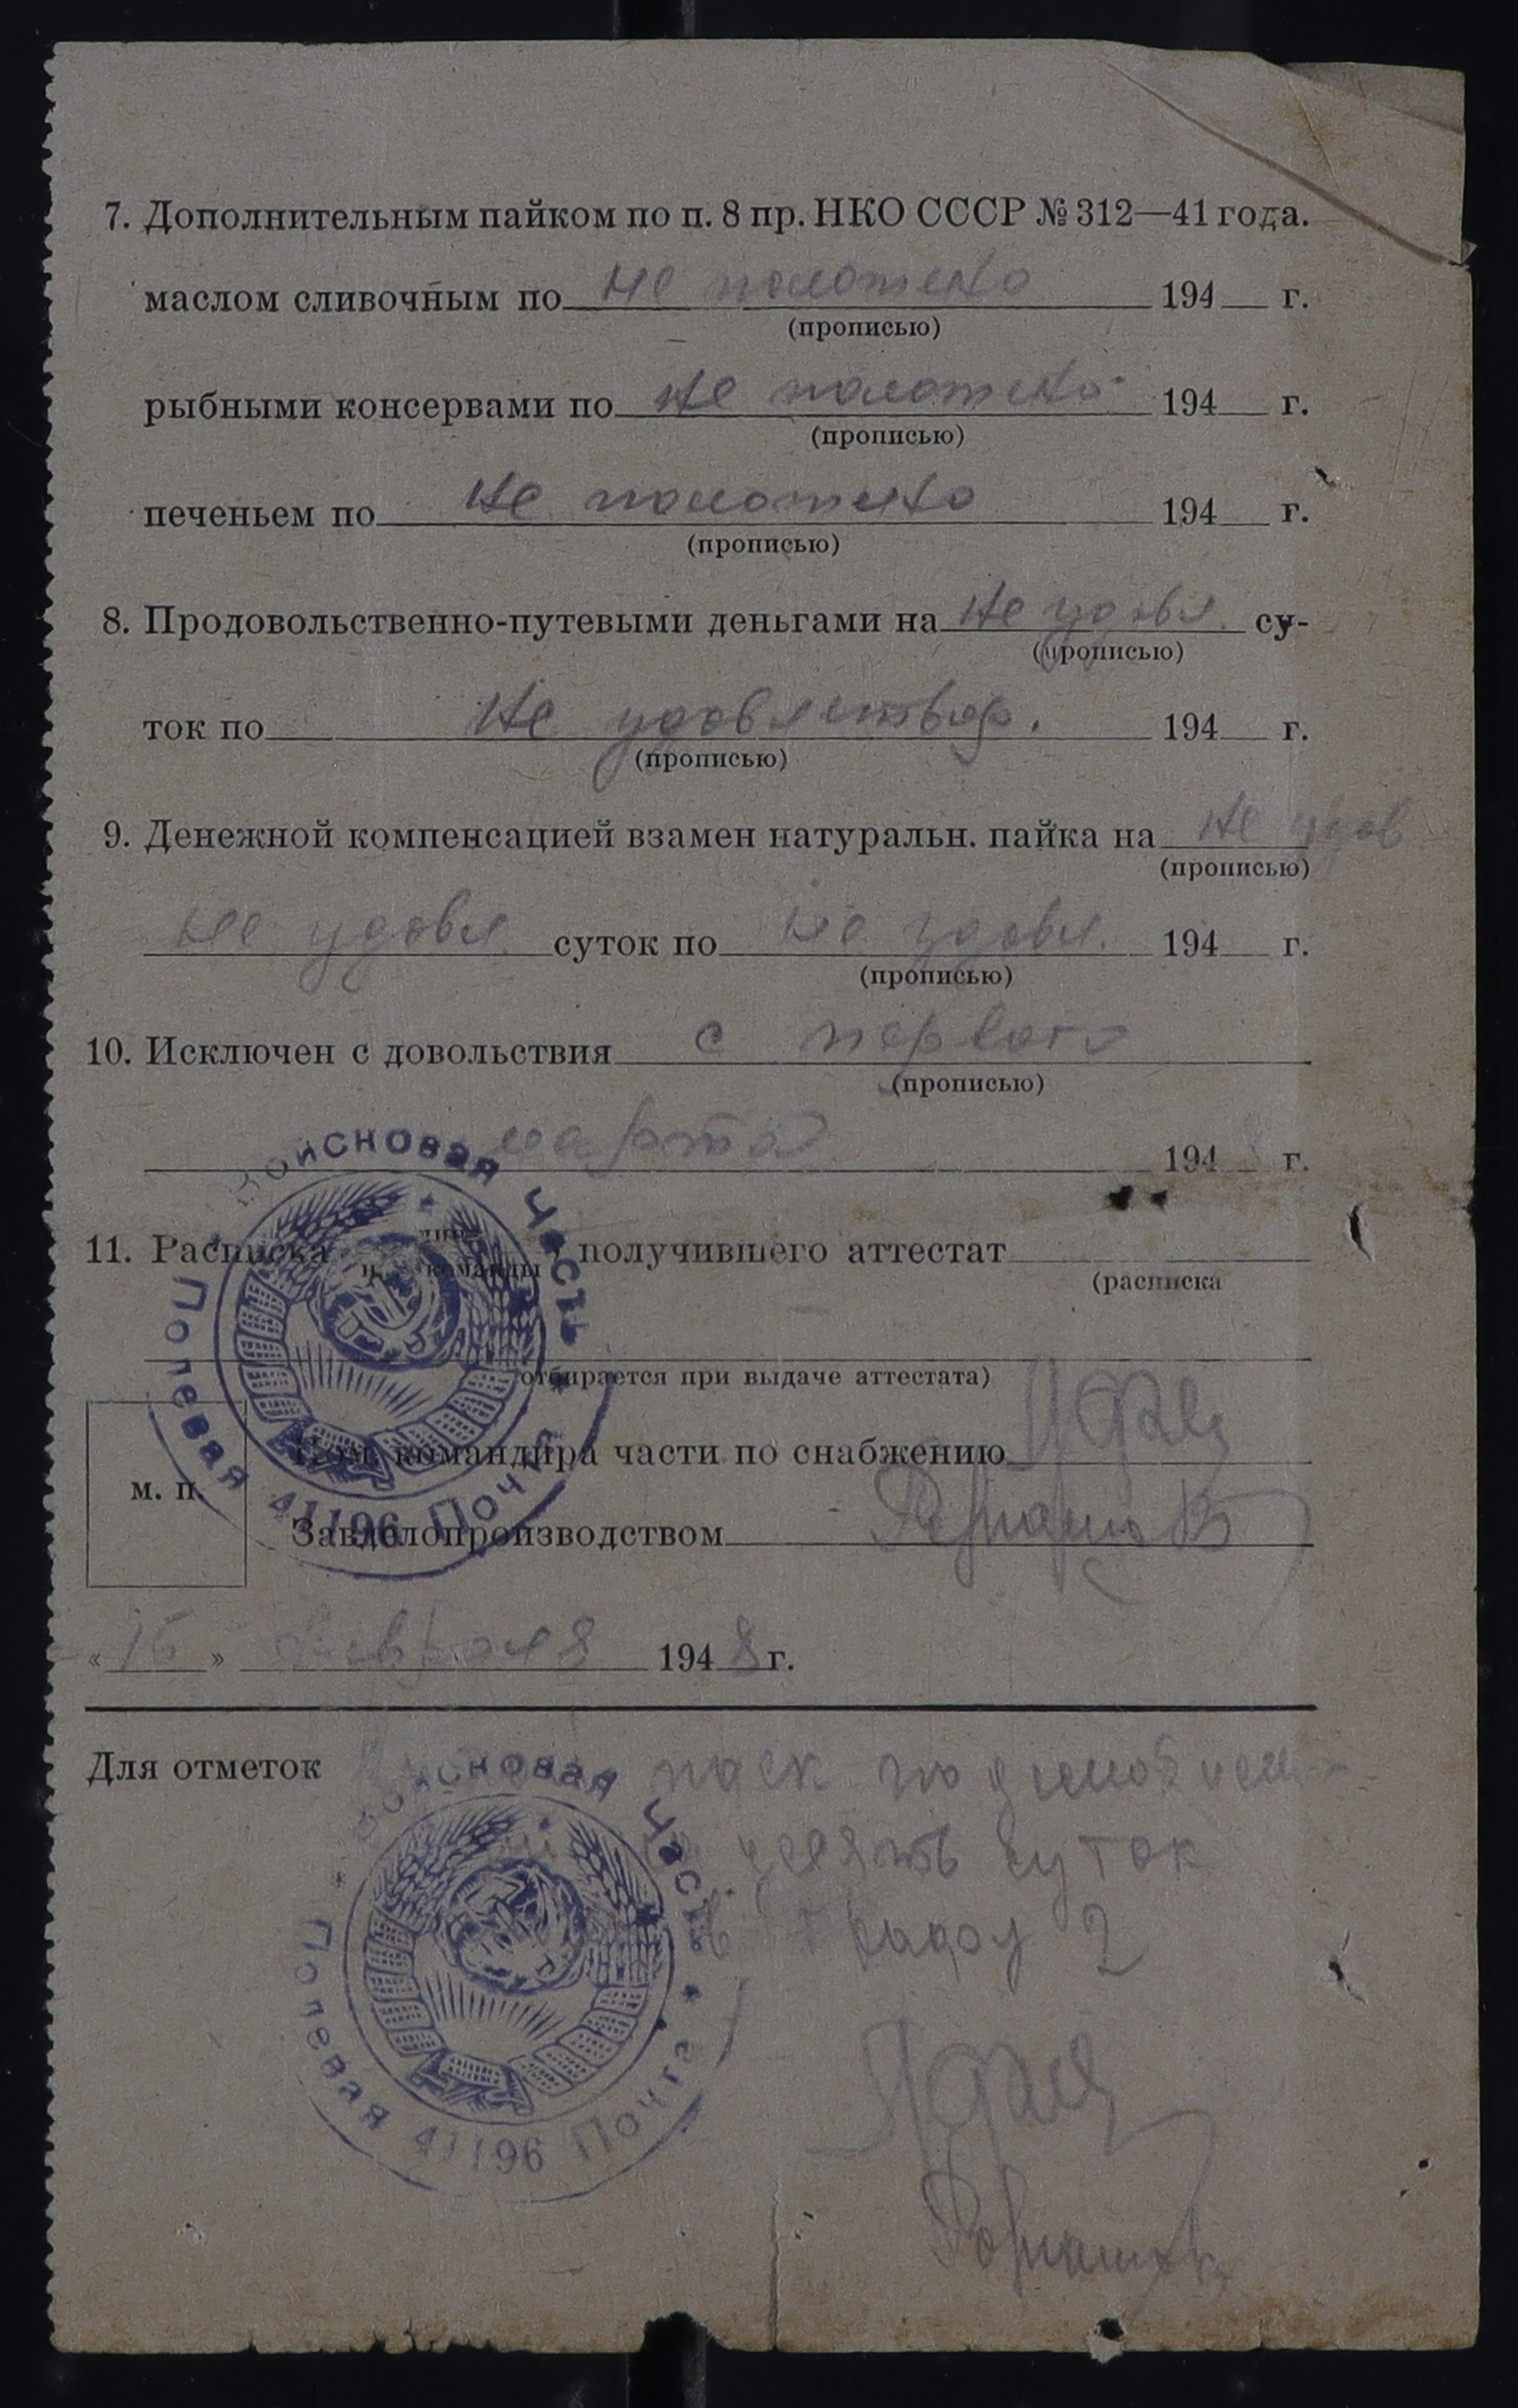 7. Дополнительным пайком по п. 8 пр. НКО СССР № 312—41 года.
маслом сливочным по не положено 194 г.
(прописью)
рыбными консервами по не положено 194 г.
(прописью)
печеньем по не положено 194 г.
(прописью)
8. Продовольственно-путевыми деньгами на не удовл. су-
(прописью)
ток по не удовлетвор. 194 г.
(прописью)
9. Денежной компенсацией взамен натуральн. пайка на не удов
(прописью)
не удовл. суток по не удовл. 194 г.
(прописью)
10. Исключен с довольствия с первого
(прописью)
марта 1948 г.
11. Расписка команды, получившего аттестат
(расписка
отбирается при выдаче аттестата)
Пом. командира части по снабжению
м. п.
Завделопроизводством
Войсковая Часть * Полевая Почта 41196
«16» февраля 1948 г.
Для отметок паек по
десять суток
2
Войсковая Часть * Полевая Почта 41196